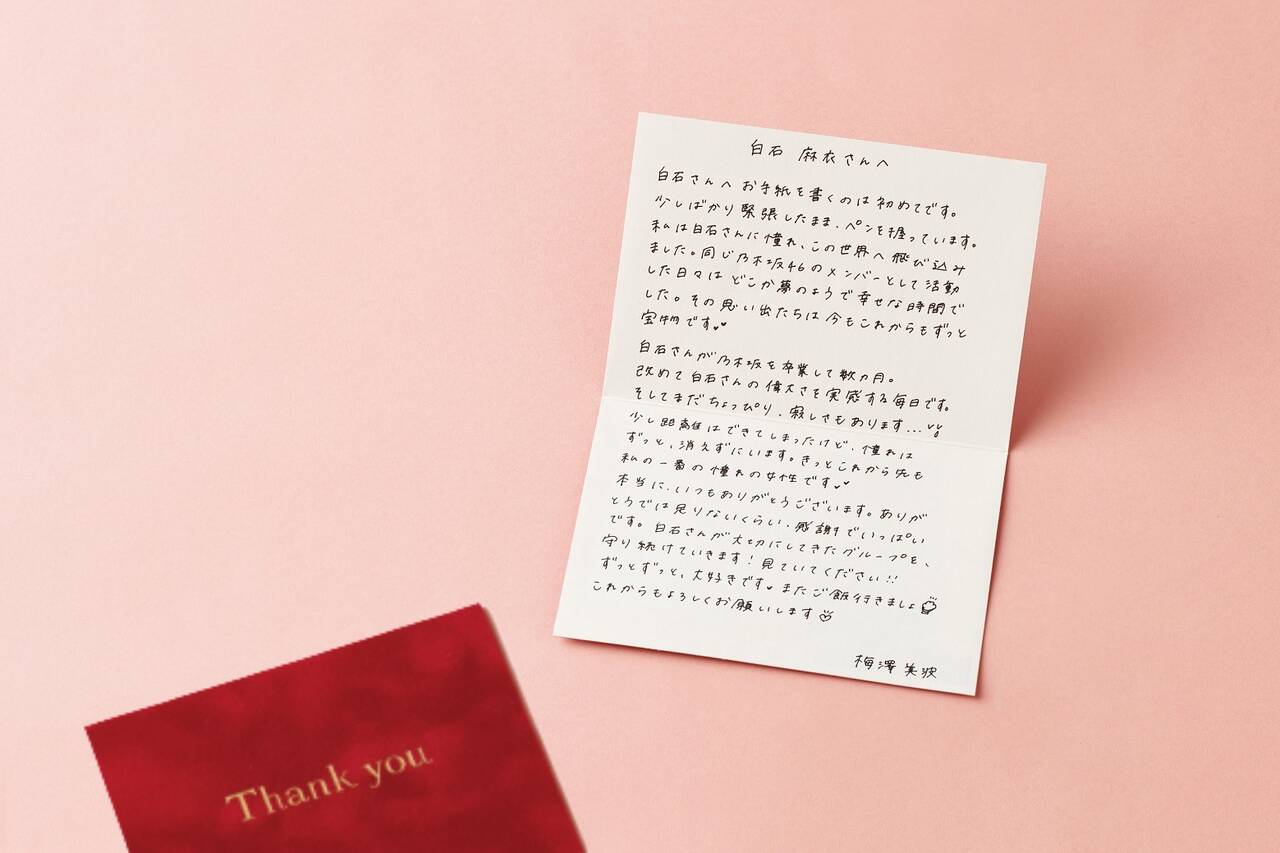 白石 麻衣さんへ
白石さんへ お手紙を書くのは初めてです。
少しばかり緊張したまま、ペンを握っています。
私は白石さんに憧れ、この世界へ飛び込み
ました。同じ乃木坂46のメンバーとして活動
した日々は どこか夢のようで幸せな時間で
した。その思い出たちは今もこれからもずっと
宝物です
白石さんが乃木坂を卒業して数ヵ月。
改めて白石さんの偉大さを実感する毎日です。
そしてまだちょっぴり、寂しさもあります...
少し距離はできてしまったけど、憧れは
ずっと、消えずにいます。きっとこれから先も
私の一番の憧れの女性です
本当に、いつもありがとうございます。ありが
とうでは足りないくらい、感謝でいっぱい
です。白石さんが大切にしてきたグループを、
守り続けていきます!見ていてください!!
ずっとずっと、大好きです♥またご飯行きましょ
これからもよろしくお願いします
梅澤 美波
Thank you